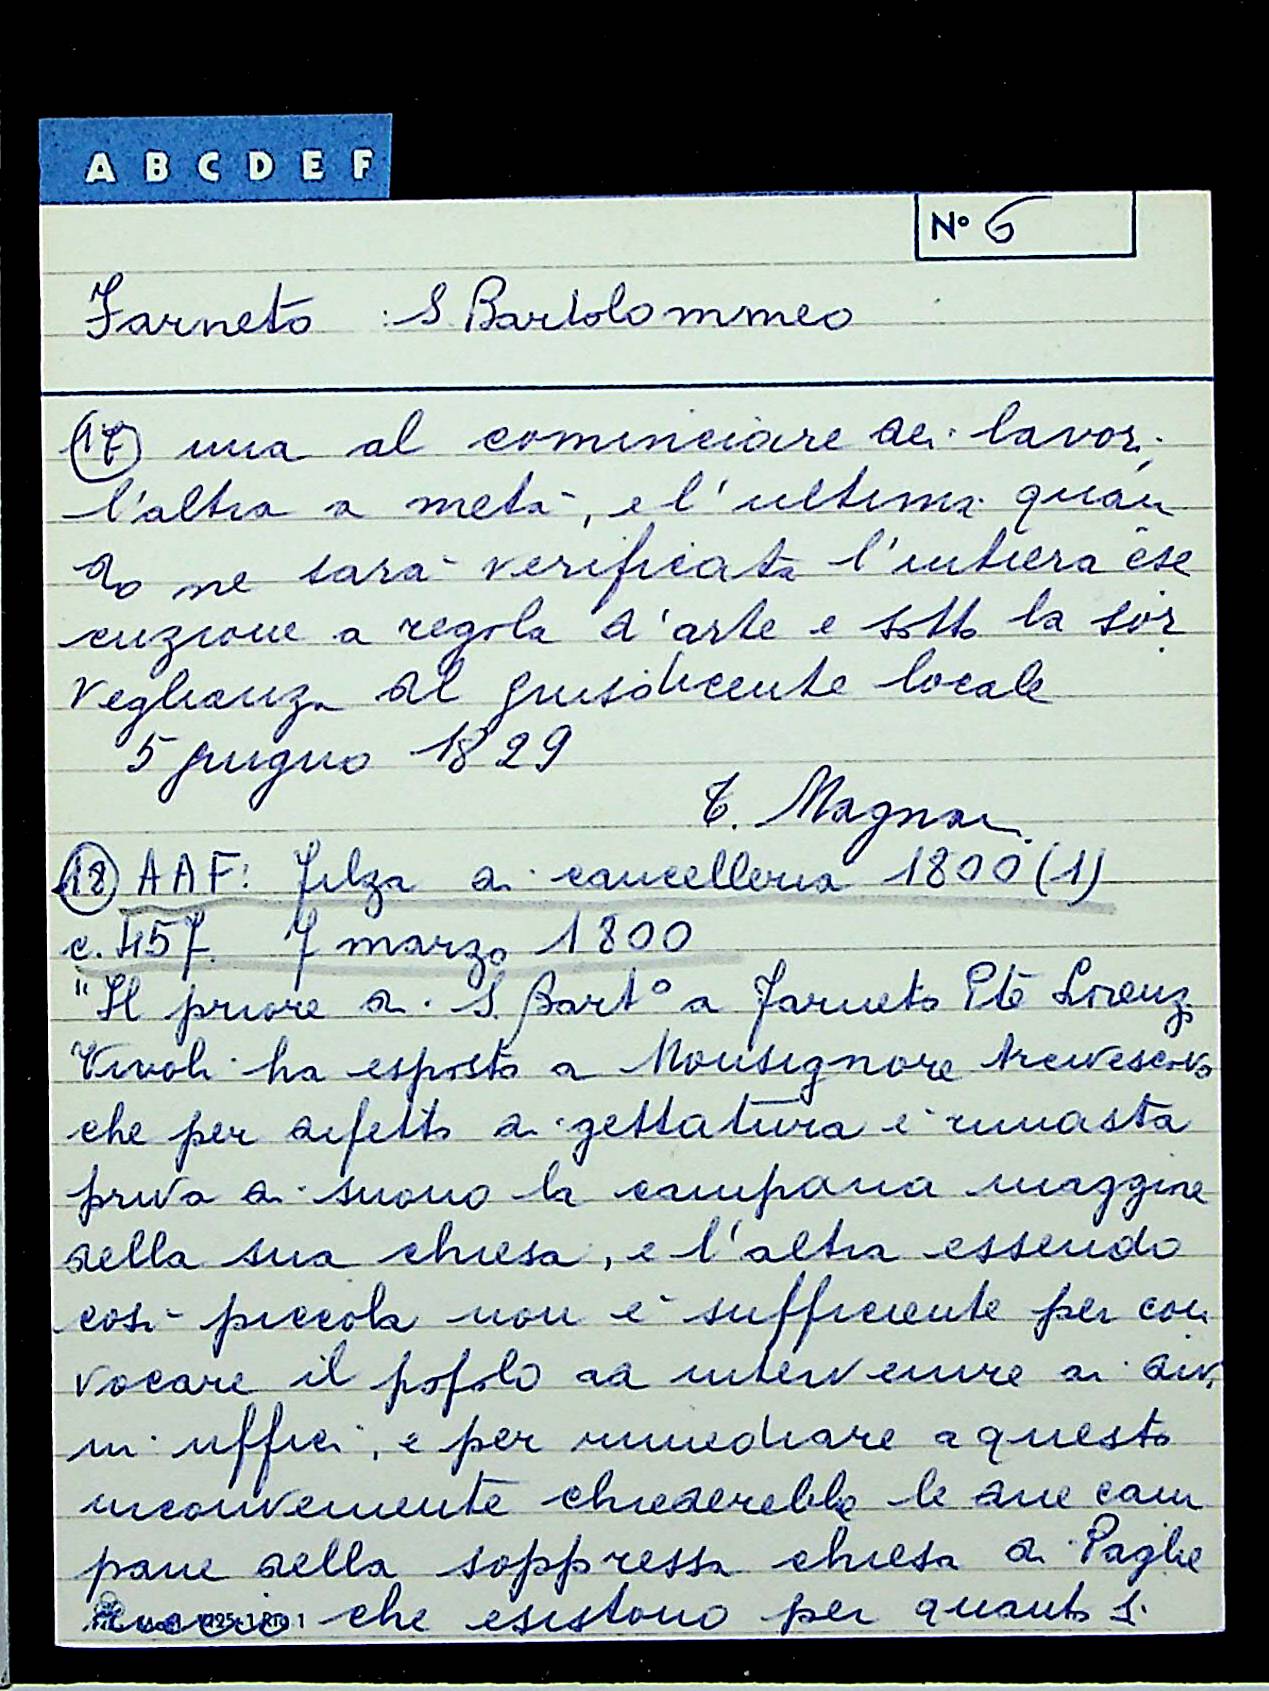 A B C D E F
N° 6
Farneto : S. Bartolommeo
17 una al cominciare dei lavori,
l'altra a metà, e l'ultima quan
do ne sarà verificata l'intiera ese
cuzione a regola d'arte e sotto la sor
veglianza del giusdicente locale
5 giugno 1829
T. Magnani
18 AAF: Filza di cancelleria 1800 (1)
c. 457. 7 marzo 1800
"Il priore di S. Bart° a Farneto Pte Lorenzo
Vivoli ha esposto a Monsignore Arcivescovo
che per difetto di gettatura è rimasta
priva di suono la campana maggiore
della sua chiesa, e l'altra essendo
così piccola non è sufficiente per con
vocare il popolo ad intervenire ai divi
ni uffici, e per rimediare a questo
inconveniente chiederebbe le due cam
pane della soppressa chiesa di Paglie
che esistono per quanto s.